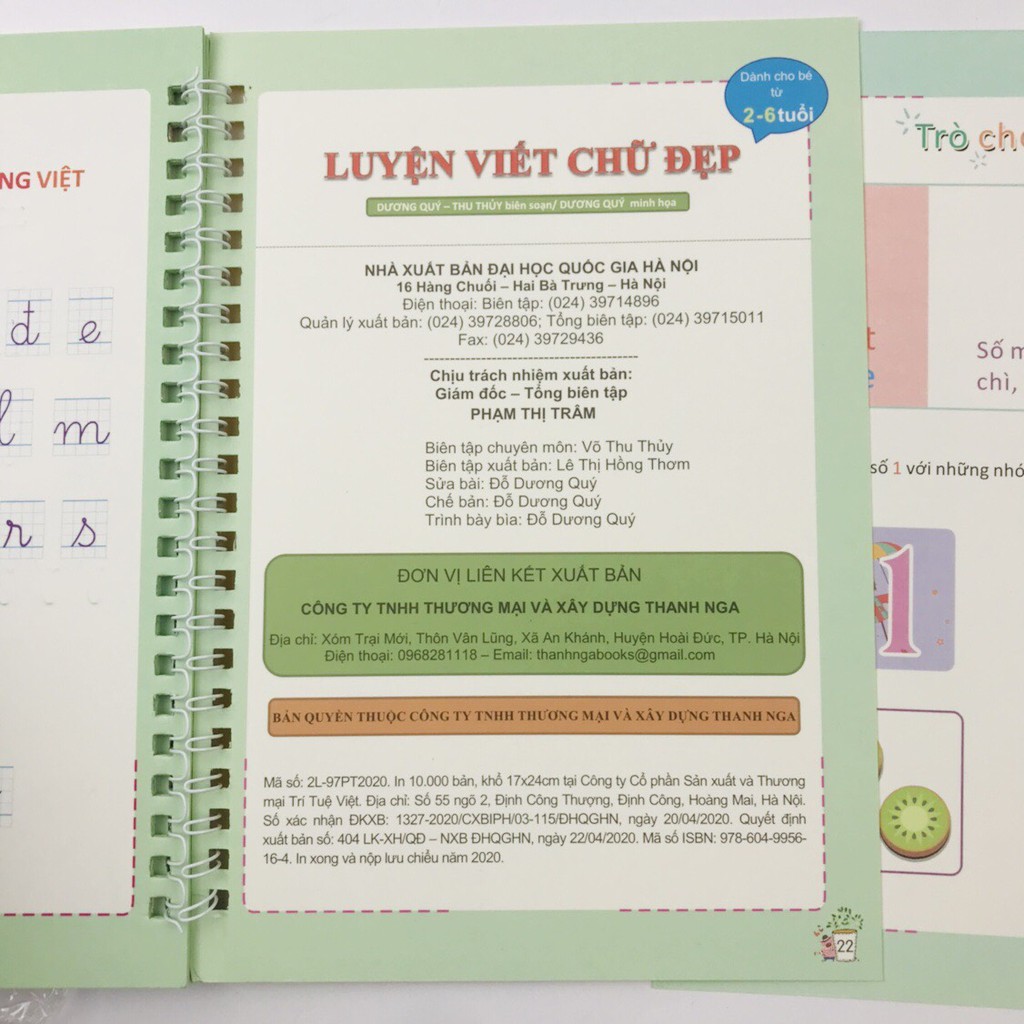 NG VIỆT
đ e
l m
r s
Dành cho bé
từ
2-6 tuổi
LUYỆN VIẾT CHỮ ĐẸP
DƯƠNG QUÝ – THU THỦY biên soạn/ DƯƠNG QUÝ minh họa
NHÀ XUẤT BẢN ĐẠI HỌC QUỐC GIA HÀ NỘI
16 Hàng Chuối – Hai Bà Trưng – Hà Nội
Điện thoại: Biên tập: (024) 39714896
Quản lý xuất bản: (024) 39728806; Tổng biên tập: (024) 39715011
Fax: (024) 39729436
Chịu trách nhiệm xuất bản:
Giám đốc – Tổng biên tập
PHẠM THỊ TRÂM
Biên tập chuyên môn: Võ Thu Thủy
Biên tập xuất bản: Lê Thị Hồng Thơm
Sửa bài: Đỗ Dương Quý
Chế bản: Đỗ Dương Quý
Trình bày bìa: Đỗ Dương Quý
ĐƠN VỊ LIÊN KẾT XUẤT BẢN
CÔNG TY TNHH THƯƠNG MẠI VÀ XÂY DỰNG THANH NGA
Địa chỉ: Xóm Trại Mới, Thôn Vân Lũng, Xã An Khánh, Huyện Hoài Đức, TP. Hà Nội
Điện thoại: 0968281118 – Email: thanhngabooks@gmail.com
BẢN QUYỀN THUỘC CÔNG TY TNHH THƯƠNG MẠI VÀ XÂY DỰNG THANH NGA
Mã số: 2L-97PT2020. In 10.000 bản, khổ 17x24cm tại Công ty Cổ phần Sản xuất và Thương
mại Trí Tuệ Việt. Địa chỉ: Số 55 ngõ 2, Định Công Thượng, Định Công, Hoàng Mai, Hà Nội.
Số xác nhận ĐKXB: 1327-2020/CXBIPH/03-115/ĐHQGHN, ngày 20/04/2020. Quyết định
xuất bản số: 404 LK-XH/QĐ – NXB ĐHQGHN, ngày 22/04/2020. Mã số ISBN: 978-604-9956-
16-4. In xong và nộp lưu chiểu năm 2020.
22
Trò ch
t
e
Số m
chì,
số 1 với những nhó
1